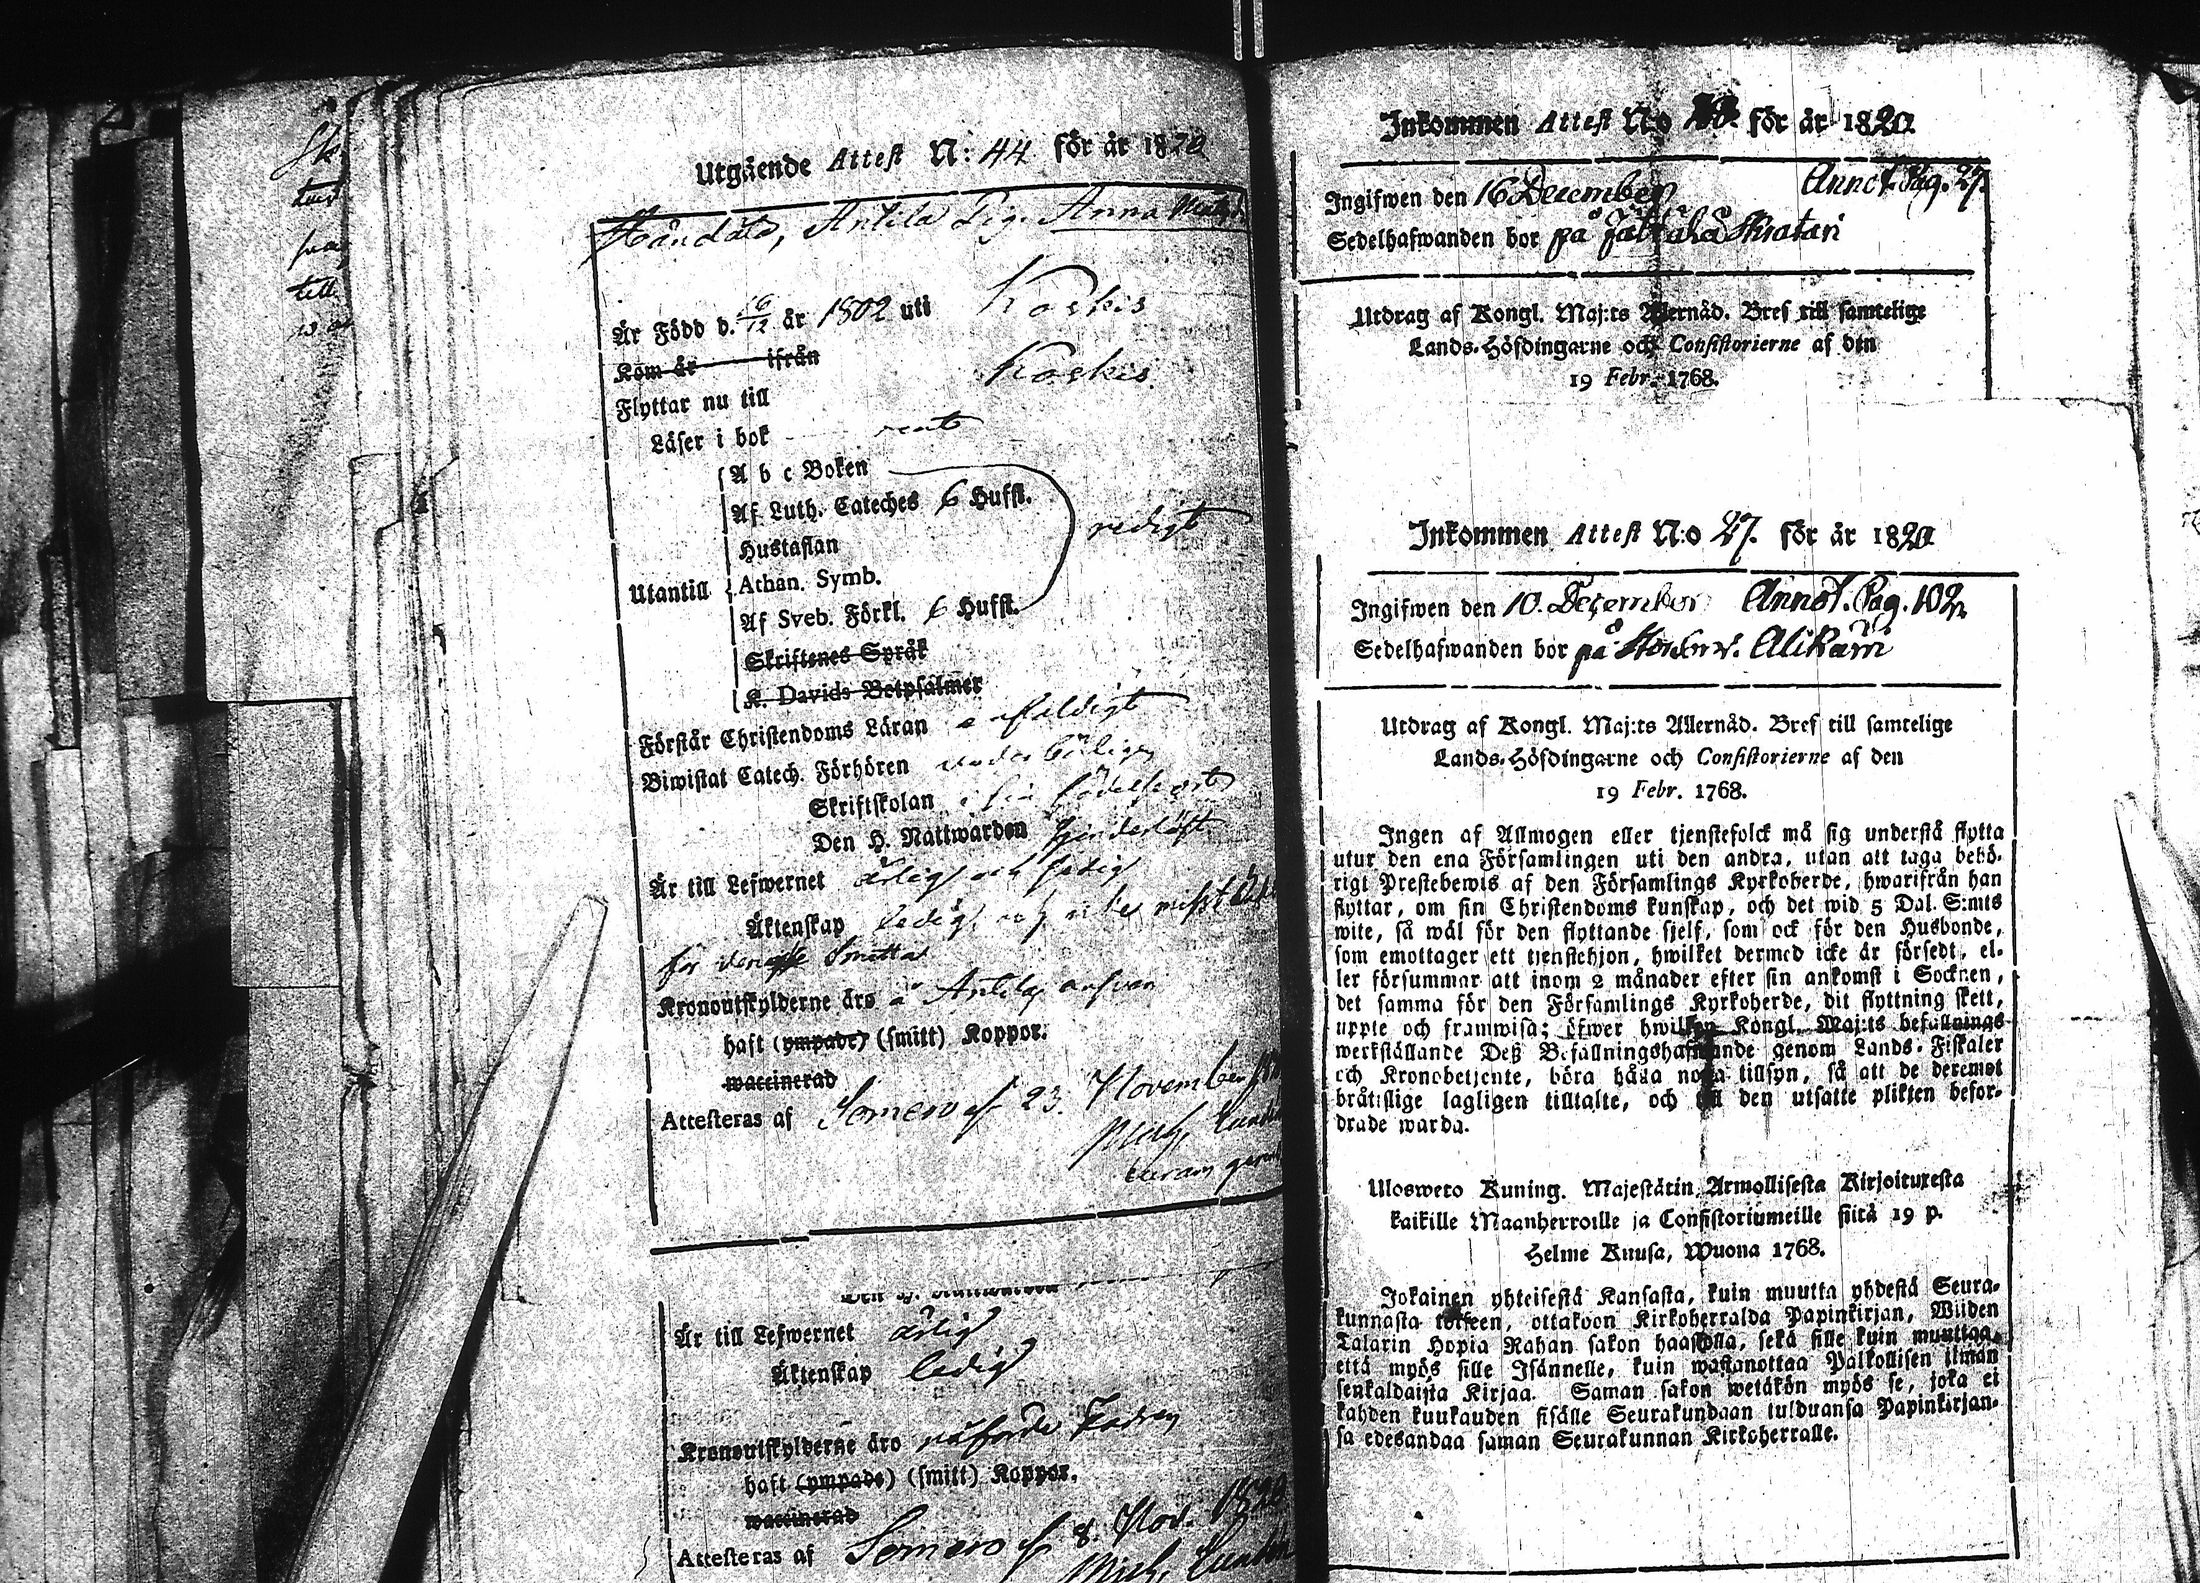 Utgående Attest N: 44 för år 1820
Håndala, Antila Pig. Anna
Är Född d. 16/12 år 1802 uti Koskis
Kom år ifrån
Flyttar nu till Koskis
Läser i bok rent
A b c Boken
Af Luth. Cateches 6 Hufst.
Hustaflan
redigt
Utantill Athan. Symb.
Af Sveb. Förkl. 6 Hufst.
Skriftenes Språk
K. Davids Botpsalmer
Förstår Christendoms Läran enfaldigt
Biwistat Catech. Förhören
Skriftskolan i sin födelseort
Den H. Nattwarden
Är till Lefwernet ärlig och
Äktenskap ledig
för Smitta
Kronoutskylderne äro å Antila
haft (ympade) (smitt) Koppor.
waccinerad
Attesteras af Somero d. 23. November
Mich.
Är till Lefwernet ärlig
Äktenskap ledig
Kronoutskylderne äro
haft (ympade) (smitt) Koppor.
waccinerad
Attesteras af Somero d. 8. Nov. 1820
Mich.
Inkommen Attest N:o för år 1820
Ingifwen den 16 December Annot. Pag. 27.
Sedelhafwanden bor på
Utdrag af Kongl. Maj:ts Allernåd. Bref till samtelige
Lands-Höfdingarne och Consistorierne af den
19 Febr. 1768.
Inkommen Attest N:o 27. för år 1820
Ingifwen den 10. December Annot. Pag. 102
Sedelhafwanden bor på
Utdrag af Kongl. Maj:ts Allernåd. Bref till samtelige
Lands-Höfdingarne och Consistorierne af den
19 Febr. 1768.
Ingen af Allmogen eller tjenstefolck må sig understå flytta
utur den ena Församlingen uti den andra, utan att taga behö-
rigt Prestebewis af den Församlings Kyrkoherde, hwarifrån han
flyttar, om sin Christendoms kunskap, och det wid 5 Dal. S:mts
wite, så wäl för den flyttande sjelf, som ock för den Husbonde,
som emottager ett tjenstehjon, hwilket dermed icke är försedt, el-
ler försummar att inom 2 månader efter sin ankomst i Socknen,
det samma för den Församlings Kyrkoherde, dit flyttning skett,
uppte och framwisa; öfwer hwilken Kongl. Maj:ts befallnings
werkställande Deß Befallningshafwande genom Lands-Fiskaler
och Kronobetjente, böra hålla noga tillsyn, så att de deremot
bråtslige lagligen tilltalte, och till den utsatte plikten befor-
drade warda.
Ulosweto Kuning. Majestätin Armollisesta Kirjoituxesta
kaikille Maanherroille ja Consistoriumeille siitä 19 p.
Helme Kuusa, Wuona 1768.
Jokainen yhteisestä Kansasta, kuin muutta yhdestä Seura-
kunnasta toiseen, ottakoon Kirkoherralda Papinkirjan, Wiiden
Talarin Hopia Rahan sakon haastolla, sekä sille kuin muuttaa,
että myös sille Isännelle, kuin wastanottaa Palkollisen ilman
senkaldaista Kirjaa. Saman sakon wetäkön myös se, joka ei
kahden kuukauden sisälle Seurakundaan tulduansa Papinkirjan-
sa edesandaa saman Seurakunnan Kirkoherralle.